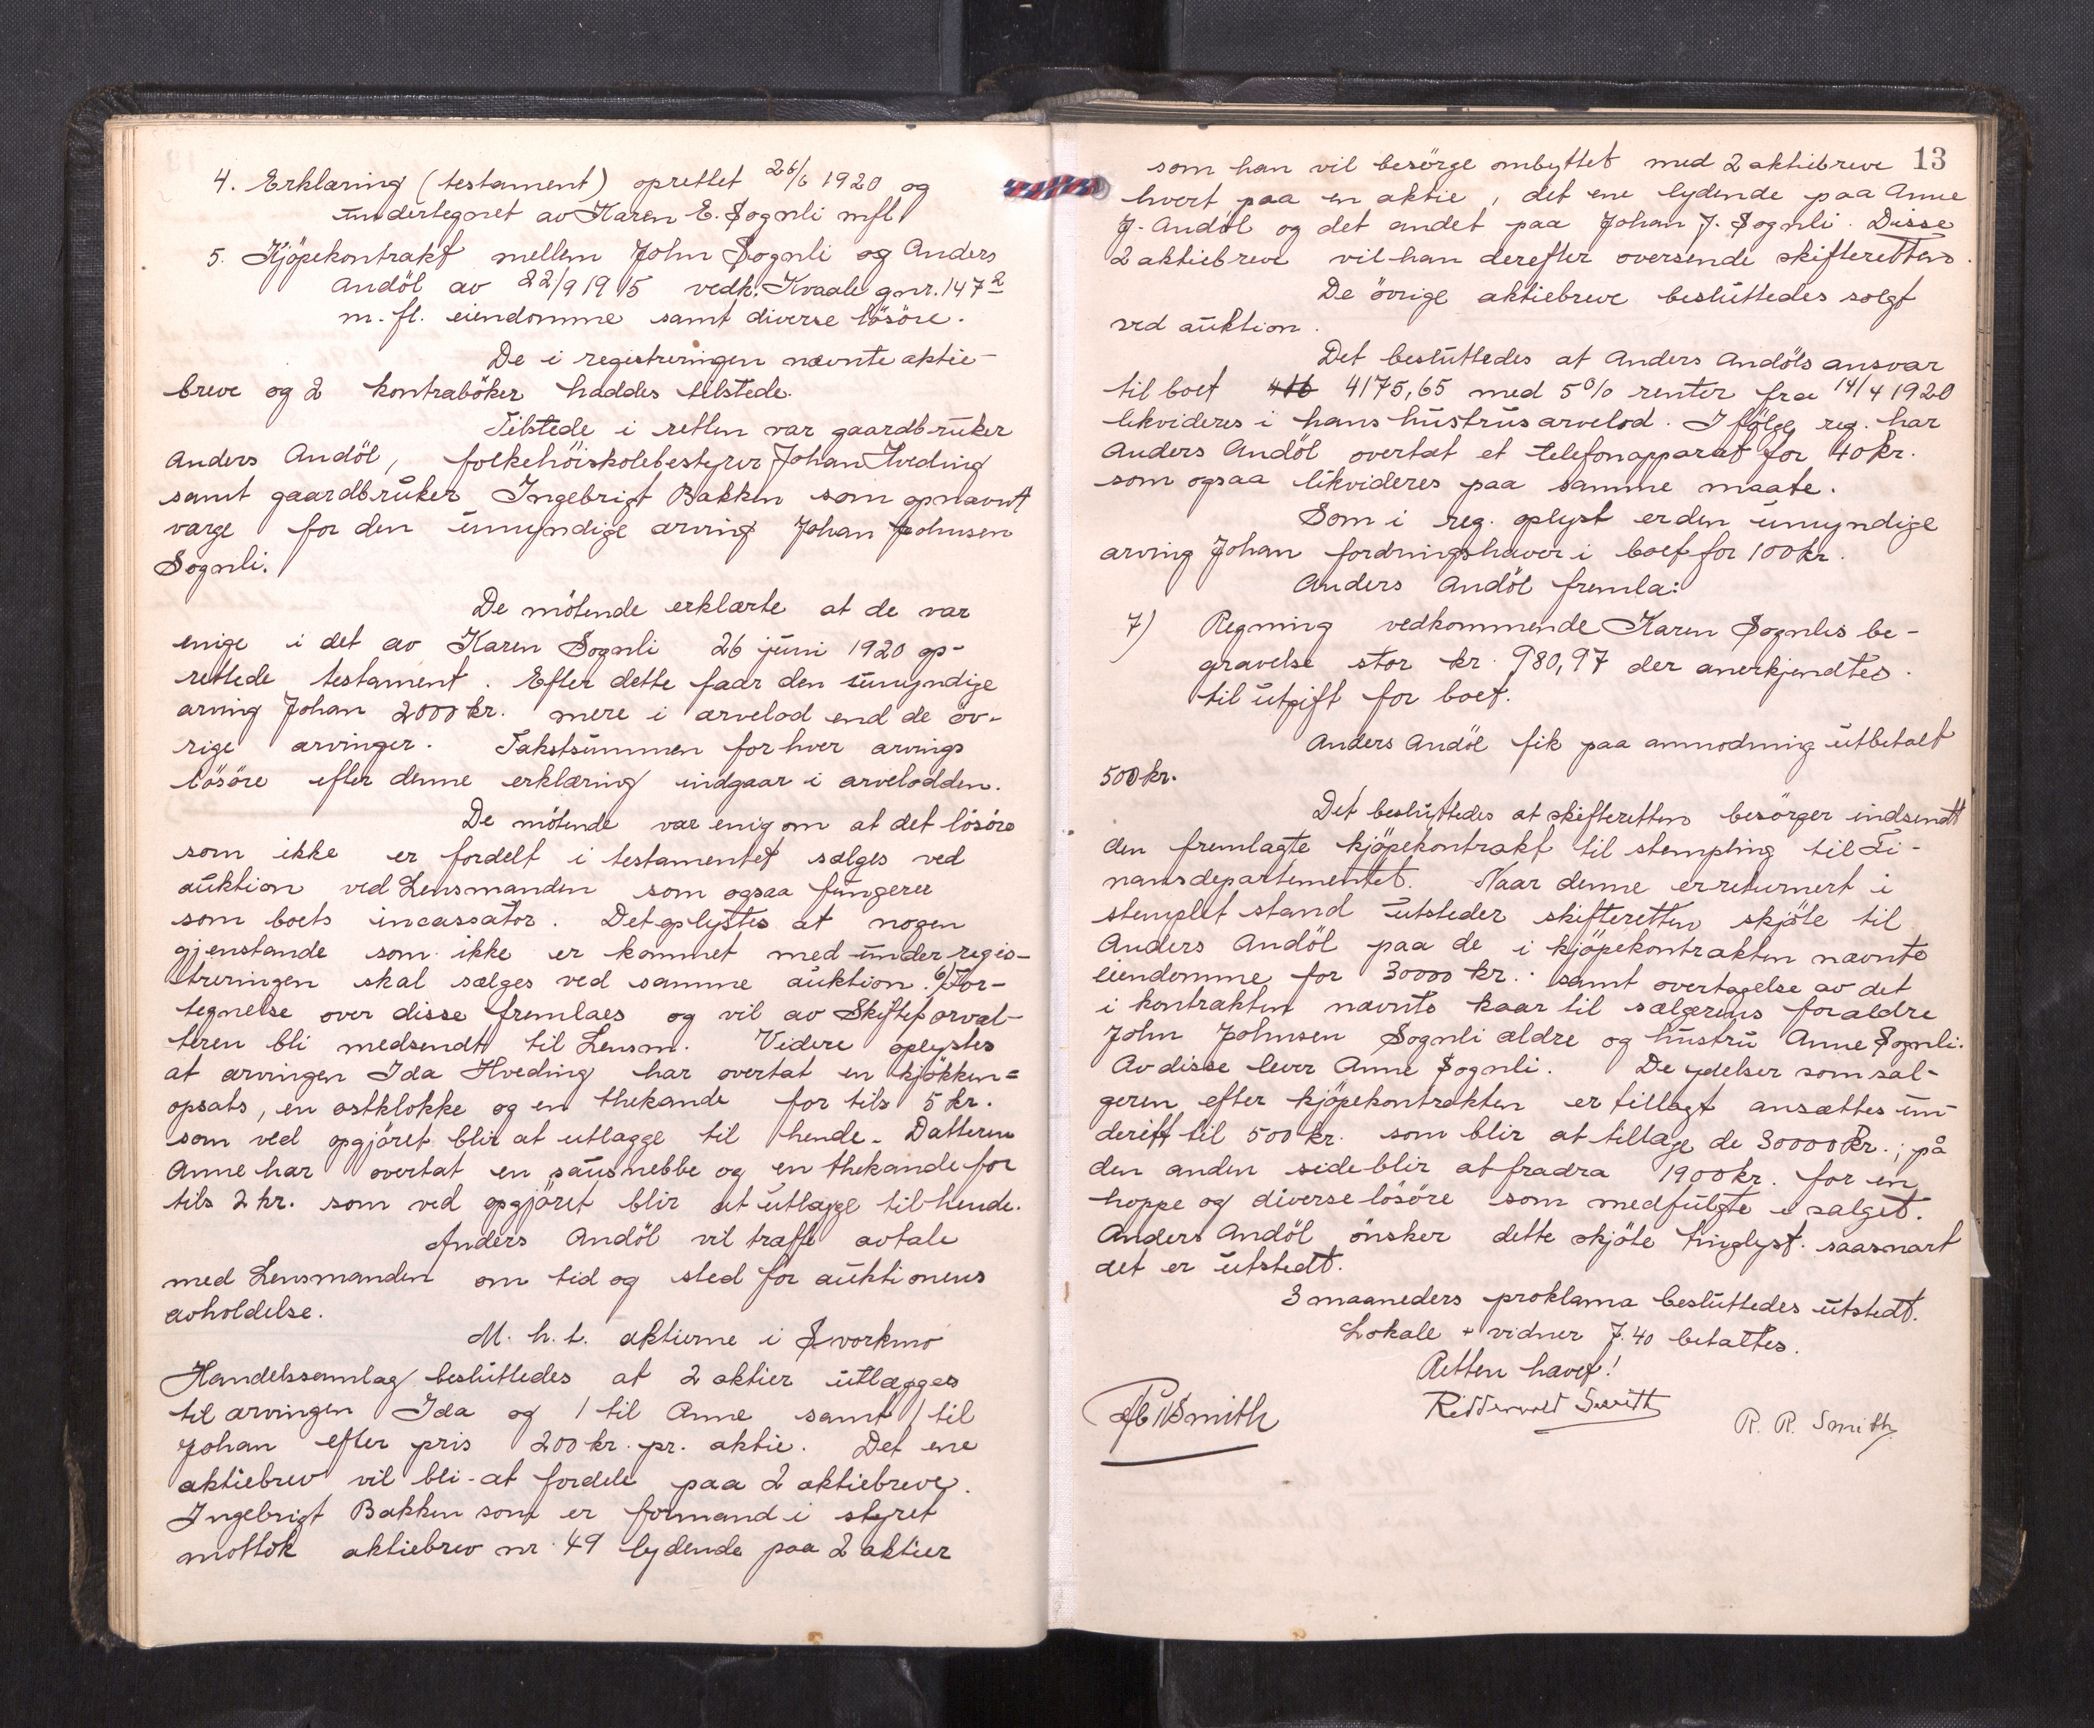 4. Erklæring (testament) oprettet 26/6 1920 og
undertegnet av Karen E. Sognli mfl
5. Kjöpekontrakt mellem John Sognli og Anders
Andöl av 22/9 1915 vedk. Kvaale gnr. 147 2
m. fl. eiendomme samt diverse lösöre.
De i registreringen nævnte aktie-
breve og 2 kontraböker haddes tilstede.
Tilstede i retten var gaardbruker
Anders Andöl, folkehöiskolebestyrer Johan Hveding
samt gaardbruker Ingebrigt Bakken som opnævnt
værge for den umyndige arving Johan Johnsen
Sognli.
De mötende erklærte at de var
enige i det av Karen Sognli 26 juni 1920 op-
rettede testament. Efter dette faar den umyndige
arving Johan 2000 kr. mere i arvelod end de öv-
rige arvinger. Takstsummen for hver arvings
lösöre efter denne erklæring indgaar i arvelodden.
De mötende var enig om at det lösöre
som ikke er fordelt i testamentet sælges ved
auktion ved Lensmanden som ogsaa fungerer
som boets incassator. Det oplystes at nogen
gjenstande som ikke er kommet med under regis-
treringen skal sælges ved samme auktion. 6) For-
tegnelse over disse fremlaes og vil av Skifteforval-
teren bli medsendt til Lensm. Videre oplystes
at arvingen Ida Hveding har overtat en kjökken=
opsats, en ostklokke og en thekande for tils 5 kr.
som ved opgjöret blir at utlægge til hende. Datteren
Anne har overtat en sausnebbe og en thekande for
tils 2 kr. som ved opgjöret blir at utlægge til hende.
Anders Andöl vil træffe avtale
med Lensmanden om tid og sted for auktionens
avholdelse.
M. h. t. aktierne i Svorkmo
Handelssamlag besluttedes at 2 aktier utlægges
til arvingen Ida og 1 til Anne samt 1 til
Johan efter pris 200 kr. pr. aktie. Det ene
aktiebrev vil bli at fordele paa 2 aktiebreve.
Ingebrigt Bakken som er formand i styret
mottok aktiebrev nr. 49 lydende paa 2 aktier
13
som han vil besörge ombyttet med 2 aktiebreve
hvert paa en aktie, det ene lydende paa Anne
J. Andöl og det andet paa Johan J. Sognli. Disse
2 aktiebreve vil han derefter oversende skifteretten.
De övrige aktiebreve besluttedes solgt
ved auktion.
Det besluttedes at Anders Andöls ansvar
til boet 416 4175,65 med 5% renter fra 14/4 1920
likvideres i hans hustrus arvelod. I fölge reg. har
Anders Andöl overtat et telefonapparat for 40 kr.
som ogsaa likvideres paa samme maate.
Som i reg. oplyst er den umyndige
arving Johan fordringshaver i boet for 100 kr.
Anders Andöl fremla:
7) Regning vedkommende Karen Sognlis be-
gravelse stor kr. 980,97 der anerkjendtes
til utgift for boet.
Anders Andöl fik paa anmodning utbetalt
500 kr.
Det besluttedes at skifteretten besörger indsendt
den fremlagte kjöpekontrakt til stempling til Fi-
nansdepartementet. Naar denne er returnert i
stemplet stand utsteder skifteretten skjöte til
Anders Andöl paa de i kjöpekontrakten nævnte
eiendomme for 30000 kr. samt overtagelse av det
i kontrakten nævnte kaar til sælgerens forældre
John Johnsen Sognli ældre og hustru Anne Sognli.
Av disse lever Anne Sognli. De ydelser som sæl-
geren efter kjöpekontrakten er tillagt ansættes un-
derett til 500 kr. som blir at tillægge de 30000 kr.; på
den anden side blir at fradra 1900 kr. for en
hoppe og diverse lösöre som medfulgte i salget.
Anders Andöl önsker dette skjöte tinglyst saasnart
det er utstedt.
3 maaneders proklama besluttedes utstedt.
Lokale + vidner 7.40 betaltes.
Retten hævet!
Smith Riddervold Smith R. R. Smith